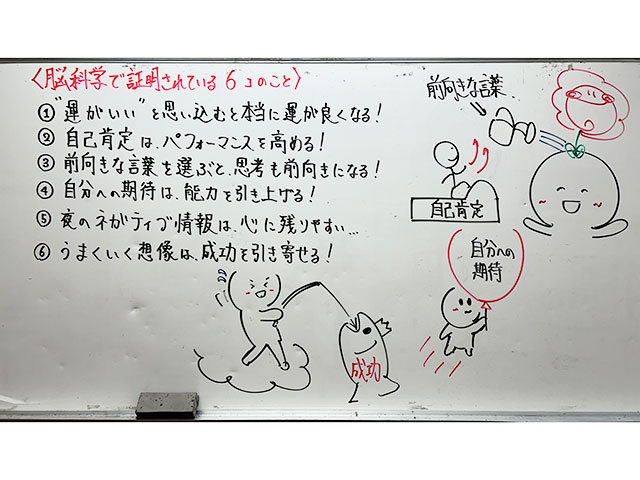 〈脳科学で証明されている6コのこと〉
①"運がいい"を思い込むと本当に運が良くなる!
②自己肯定は、パフォーマンスを高める!
③前向きな言葉を選ぶと、思考も前向きになる!
④自分への期待は、能力を引き上げる!
⑤夜のネガティブ情報は、心に残りやすい…
⑥うまくいく想像は、成功を引き寄せる!
前向きな言葉
自己肯定
自分への
期待
成功